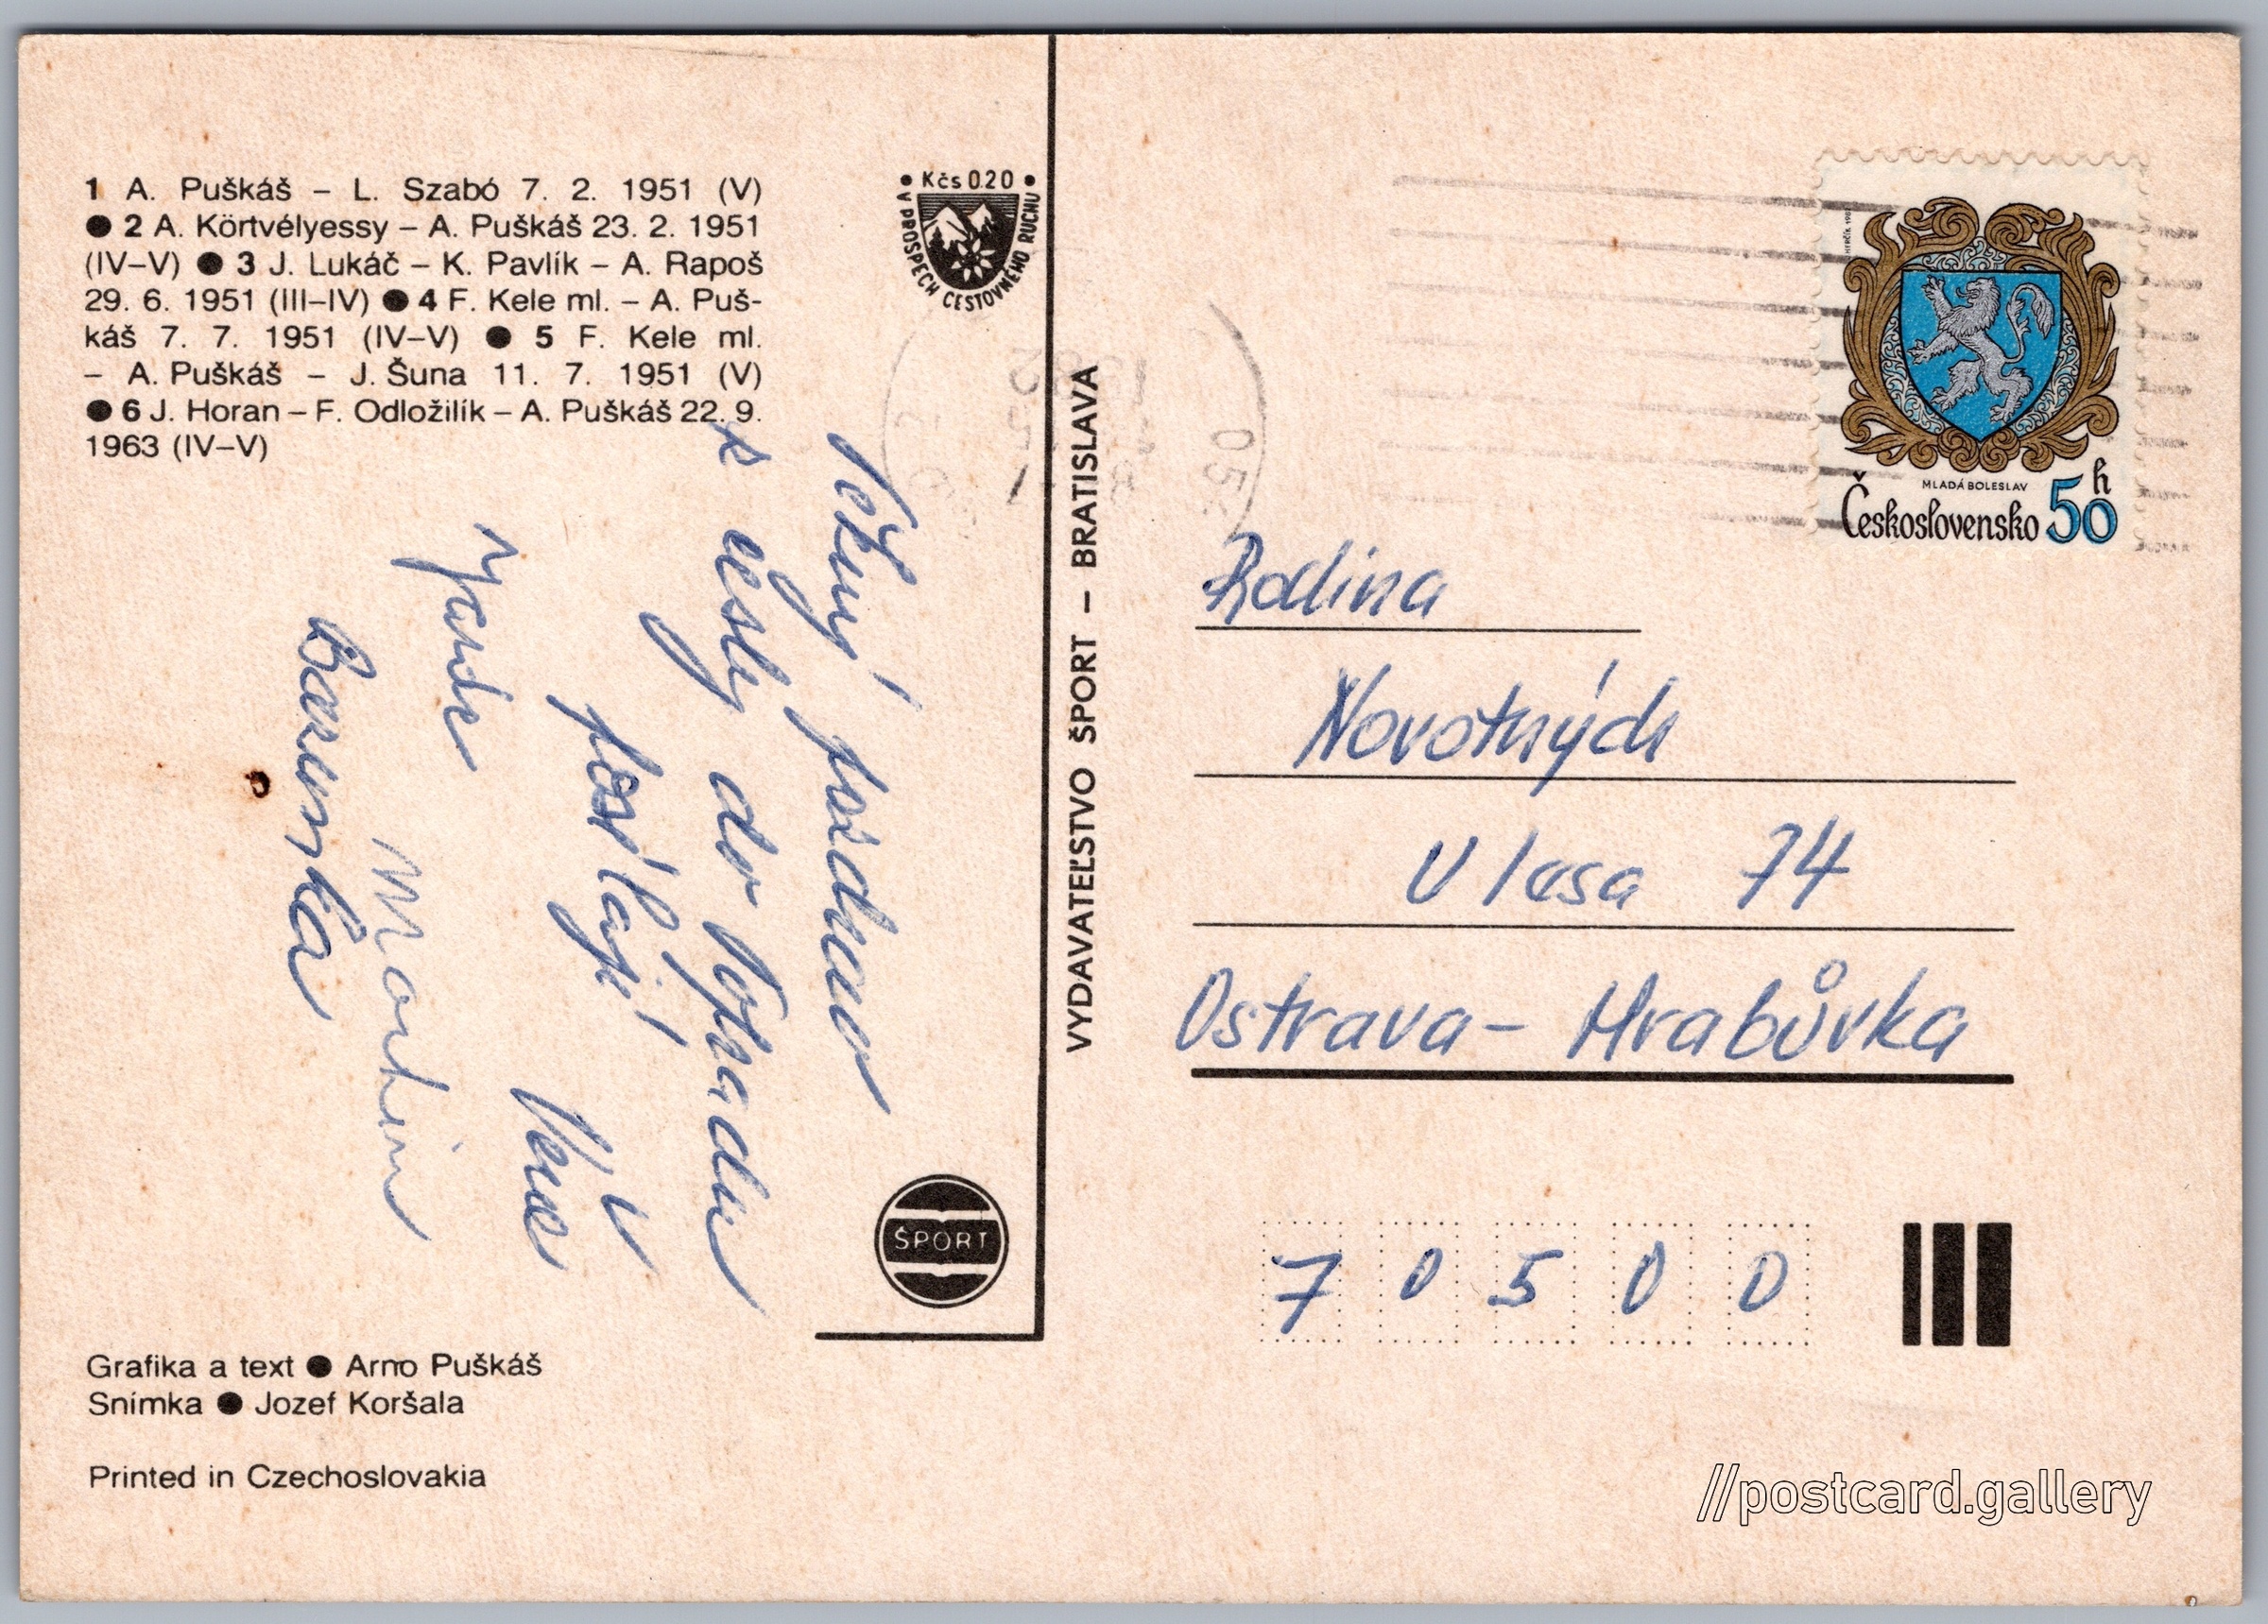 1 A. Puškáš – L. Szabó 7. 2. 1951 (V)
● 2 A. Körtvélyessy – A. Puškáš 23. 2. 1951
(IV–V) ● 3 J. Lukáč – K. Pavlík – A. Rapoš
29. 6. 1951 (III–IV) ● 4 F. Kele ml. – A. Puš-
káš 7. 7. 1951 (IV–V) ● 5 F. Kele ml.
– A. Puškáš – J. Šuna 11. 7. 1951 (V)
● 6 J. Horan – F. Odložilík – A. Puškáš 22. 9.
1963 (IV–V)
• Kčs 0.20 •
V PROSPECH CESTOVNÉHO RUCHU
pozdrav
z cesty do Popradu
posílají
Martin
ŠPORT
Grafika a text ● Arno Puškáš
Snímka ● Jozef Koršala
Printed in Czechoslovakia
VYDAVATEĽSTVO ŠPORT – BRATISLAVA
MLADÁ BOLESLAV
Československo 50 h
Rodina
Novotných
U lesa 74
Ostrava – Hrabůvka
7 0 5 0 0
//postcard.gallery